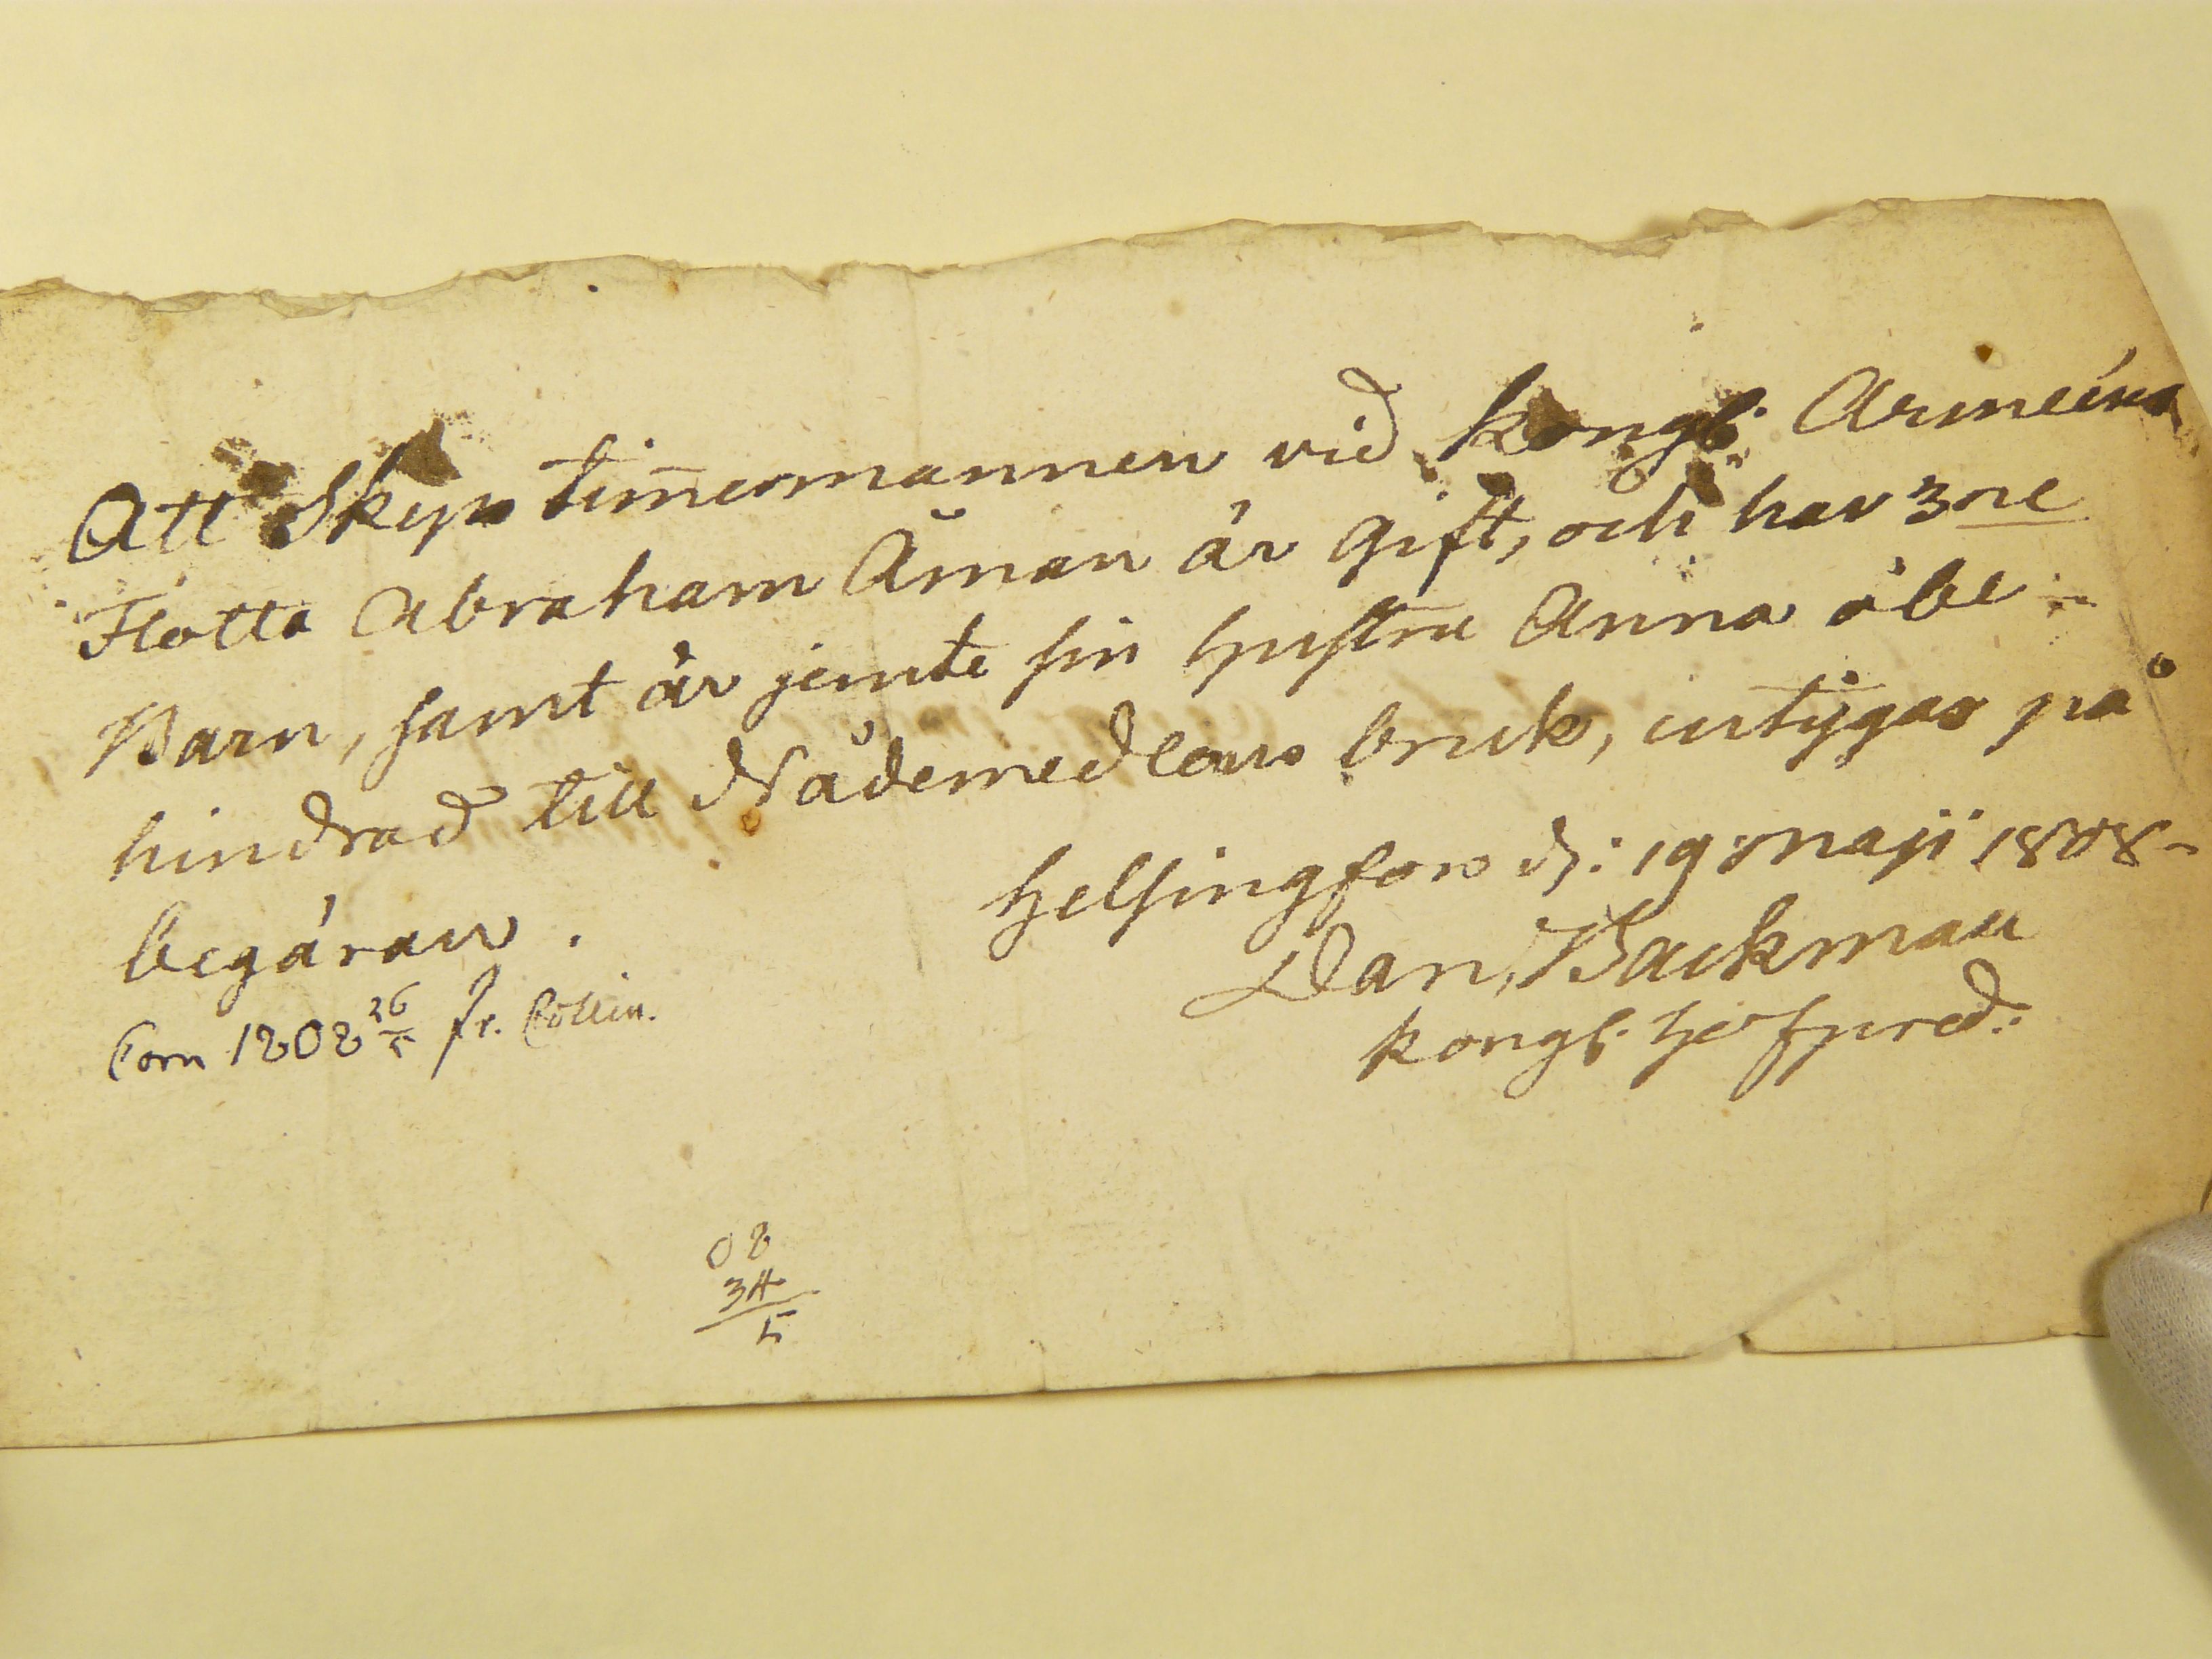 Att Skeps tim̄ermannen vid Kongl. Arméens
Flotta Abraham Åman är Gift, och har 3ne
Barn, samt är jemte sin hustru Anna obe-
hindrad till Nådemedlens bruk, intygas på
begäran.
Helsingfors d: 19 Maji 1808-
Dan. Backman
Kongl. Hofpred:
Com 1808 26/5 fr. Collin.
08
34
5